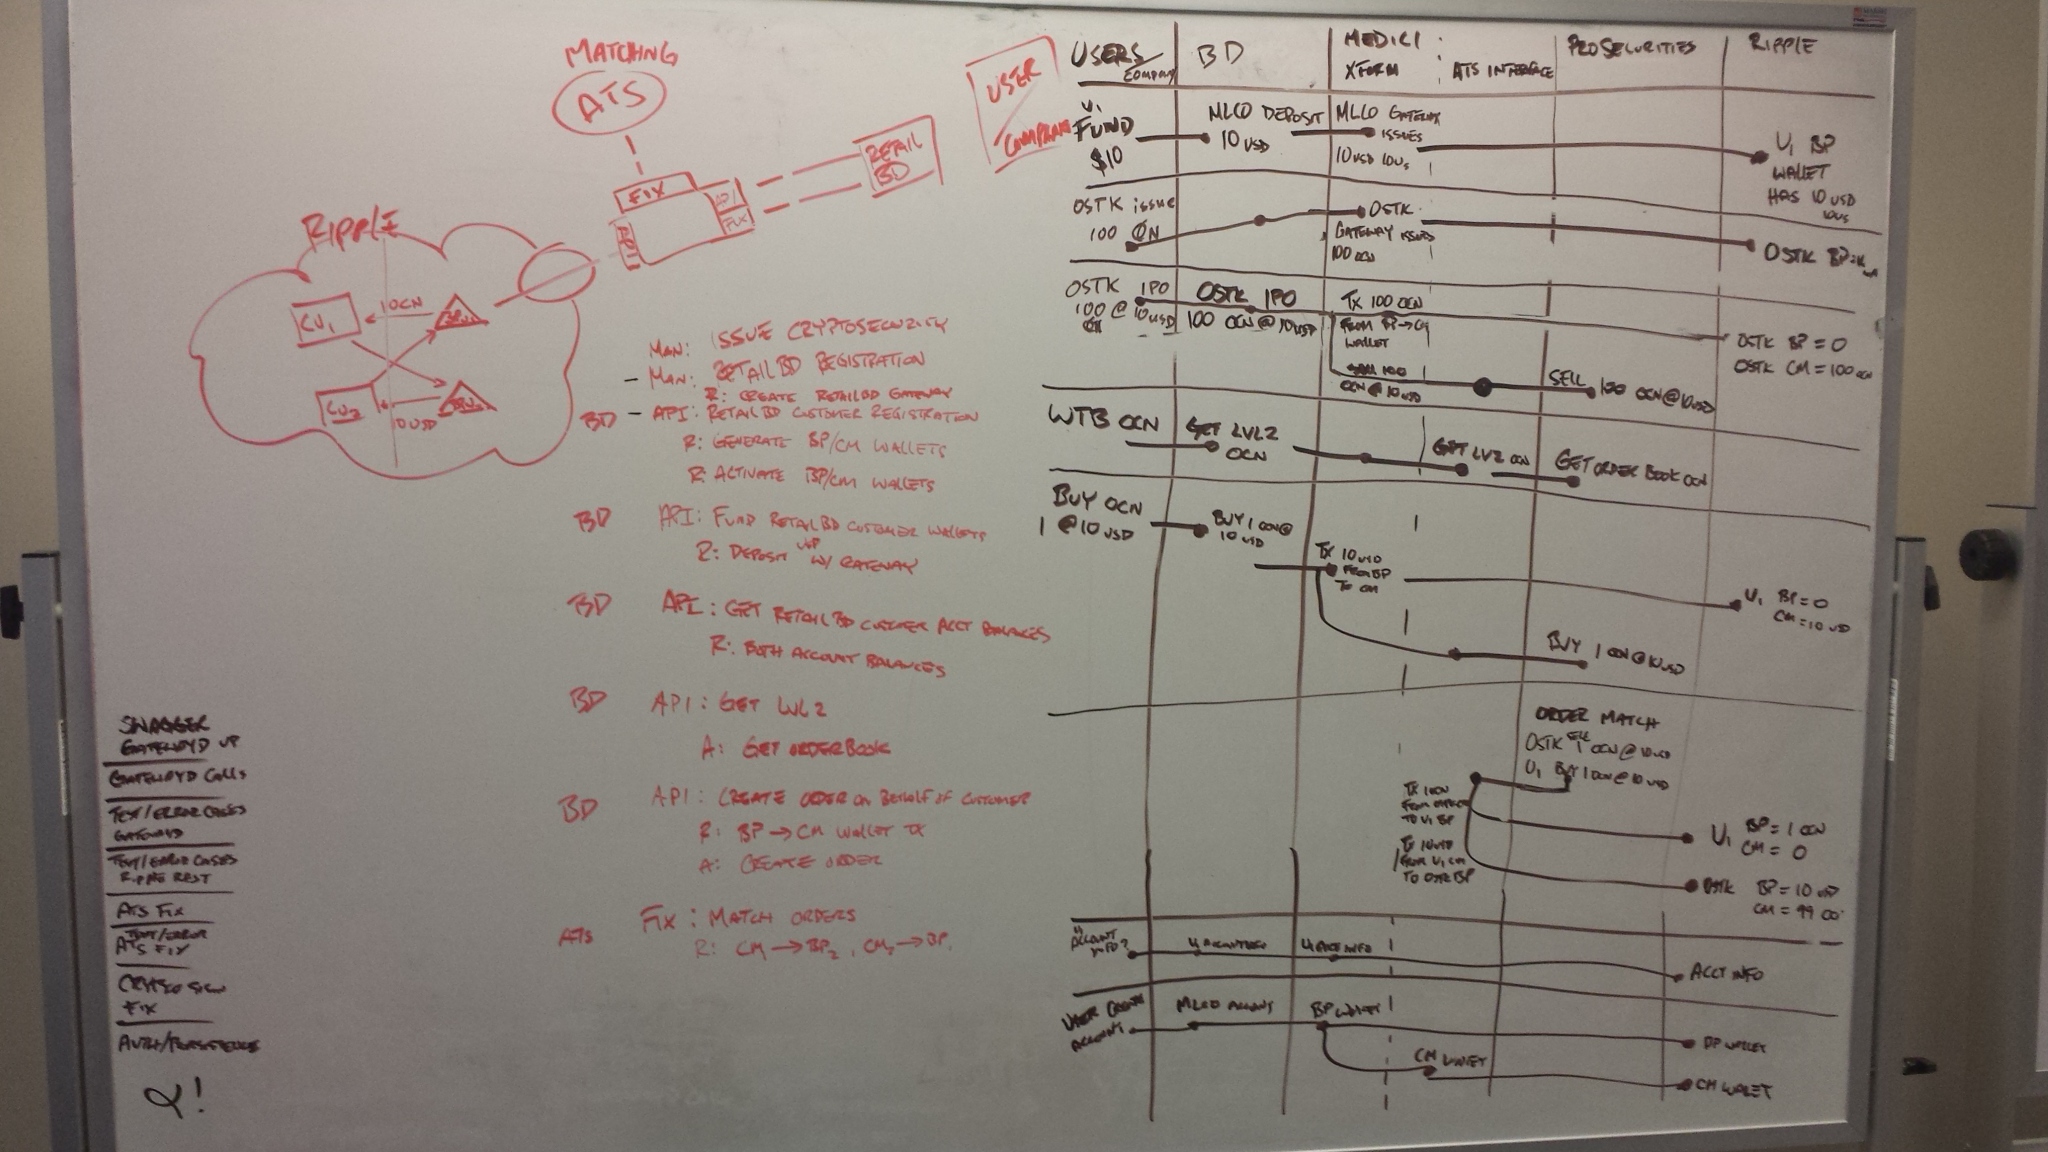 MATCHING
ATS
FIX
API
FIX
RETAIL
BD
USER
RIPPLE
CU1
10CN
BPU1
CU2
10 USD
MAN: ISSUE CRYPTOSECURITY
- MAN: RETAIL BD REGISTRATION
R: CREATE RETAILBD GATEWAY
BD - API: RETAILBD CUSTOMER REGISTRATION
R: GENERATE BP/CM WALLETS
R: ACTIVATE BP/CM WALLETS
BD API: FUND RETAILBD CUSTOMER WALLETS
R: DEPOSIT USD W/ GATEWAY
BD API: GET RETAILBD CUSTOMER ACCT BALANCES
R: BOTH ACCOUNT BALANCES
BD API: GET LVL 2
A: GET ORDERBOOK
BD API: CREATE ORDER ON BEHALF OF CUSTOMER
R: BP → CM WALLET TX
A: CREATE ORDER
ATS FIX: MATCH ORDERS
R: CM → BP2, CM2 → BP
SWAGGER
GATEWAYD UP
GATEWAYD CALLS
TEST/ERROR CASES
GATEWAYD
TEST/ERROR CASES
RIPPLE REST
ATS FIX
TEST/ERROR
ATS FIX
CRYPTO SIGN
FIX
AUTH/PERSISTENCE
!
USERS/COMPANY
BD
MEDICI
XFORM
ATS INTERFACE
PRO SECURITIES
RIPPLE
U1
FUND
$10
MLCO DEPOSIT
10 USD
MLCO GATEWAY
ISSUES
10 USD IOUs
U1 BP
WALLET
HAS 10 USD
IOUs
OSTK ISSUE
100 OCN
OSTK
GATEWAY ISSUES
100 OCN
OSTK BP=
OSTK IPO
100 @ 10 USD
OSTK IPO
100 OCN @ 10 USD
TX 100 OCN
FROM BP → CM
WALLET
SELL 100
OCN @ 10 USD
SELL 100 OCN @ 10 USD
OSTK BP = 0
OSTK CM = 100 OCN
WTB OCN
GET LVL2
OCN
GET LVL2 OCN
GET ORDER BOOK OCN
BUY OCN
1 @ 10 USD
BUY 1 OCN @
10 USD
TX 10 USD
FROM BP
TO CM
U1 BP = 0
CM = 10 USD
BUY 1 OCN @ 10 USD
ORDER MATCH
OSTK SELL 1 OCN @ 10 USD
U1 BUY 1 OCN @ 10 USD
TX 1 OCN
TO U1 BP
TX 10 USD
FROM U1 CM
TO OSTK BP
U1 BP = 1 OCN
CM = 0
OSTK BP = 10 USD
CM = 99 OC
U1
ACCOUNT
INFO?
U1 ACCT INFO
ACCT INFO
USER CREATE
ACCOUNT
MLCO ACCOUNT
BP WALLET
CM WALLET
BP WALLET
CM WALLET